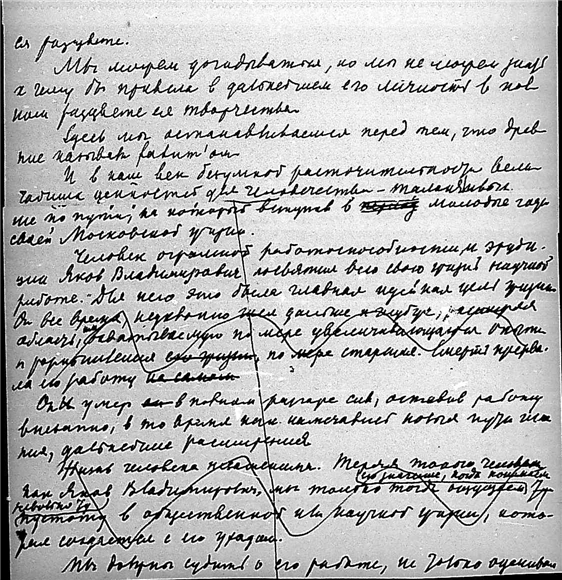 ся расцвете.
Мы можем догадываться, но мы не можем знать
к чему бы привела в дальнейшем его личность в пол
ном расцвете ея творчества
Здесь мы останавливаемся перед тем, что древ
ние называли
И в наш век безумной расточительности вели
чайших ценностей для человечества - талантливых
не по пути, на который вступив в молодые годы
своей Московской жизни.
Человек огромной работоспособности и эруди-
ции Яков Владимирович посвятил всю свою жизнь научной
работе. - Для него это была главная идейная цель жизни
Он все время неуклонно шел дальше и глубже, расширяя
область, охватываемую по мере увеличивающегося опыта
и размышления его жизни, по мере старения. Смерть прерва-
ла его работу на самом
Он умер в полном разгаре сил, оставив работу
внезапно, в то время как намечались новые пути
ния, дальнейшие расширения
Жизнь человека незаменима. Теряя такого человека
его значение, когда
как Яков Владимирович, мы только тогда ощущаем
пустоту в общественной или научной жизни, кото-
рая создается с его уходом.
Мы должны судить о его работе, не только оценивая